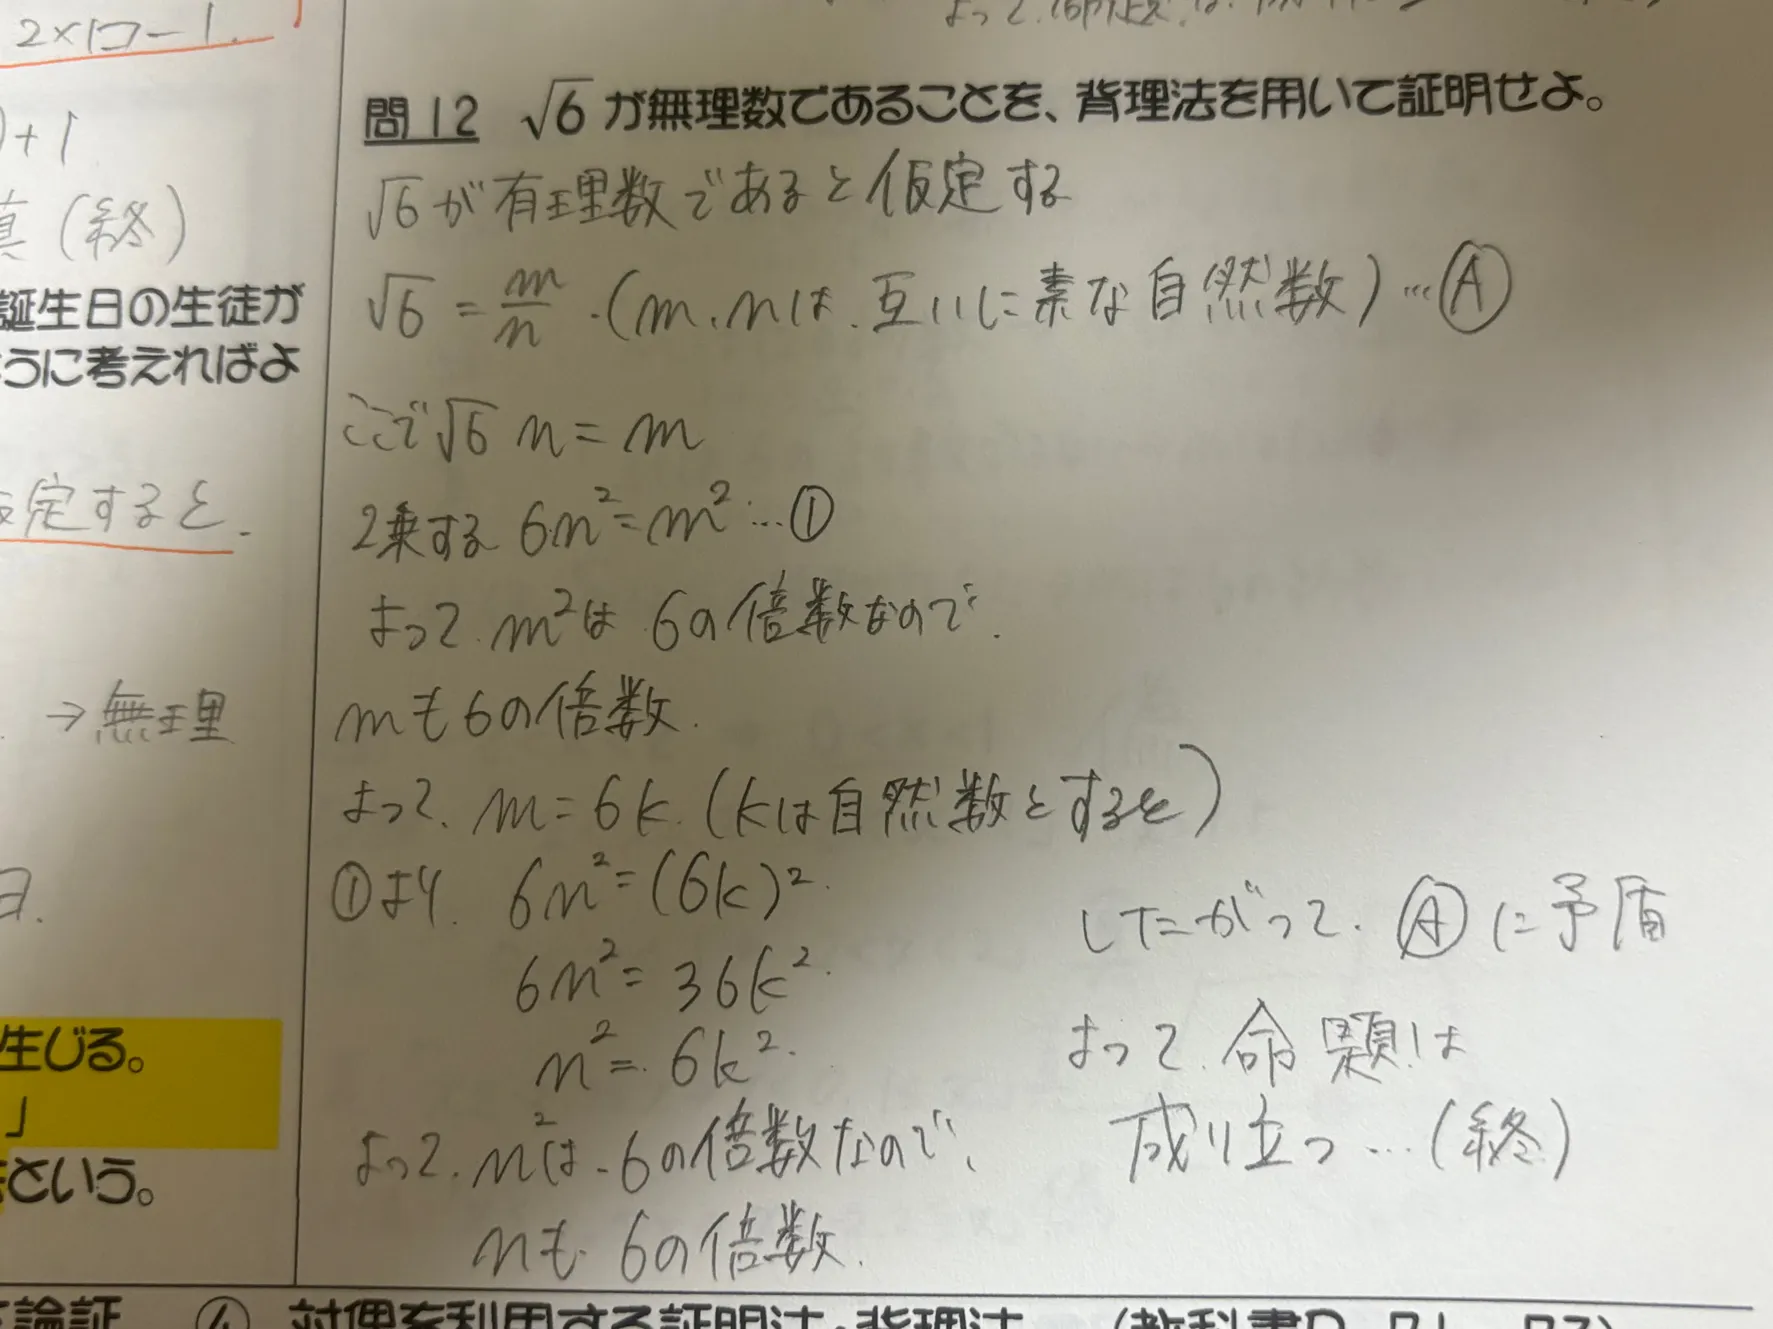 2×ロ－1.
)+1
真(終)
誕生日の生徒が
うに考えればよ
定すると.
→無理
生じる。
」
という。
よって、命題は、
問12 √6が無理数であることを、背理法を用いて証明せよ。
√6が有理数であると仮定する
√6 = m/n .(m、nは、互いに素な自然数)…Ⓐ
ここで√6 n = m
2乗する 6n²=m²…①
よって、m²は 6の倍数なので、
mも6の倍数.
よって、m=6k.(kは自然数とすると)
①より、6n²=(6k)².
6n²=36k².
n²=6k².
よって、n²は、6の倍数なので、
nも 6の倍数.
したがって、Ⓐに矛盾
よって、命題は
成り立つ…(終)
論証 ④ 対偶を利用する証明法・背理法 (教科書P.71